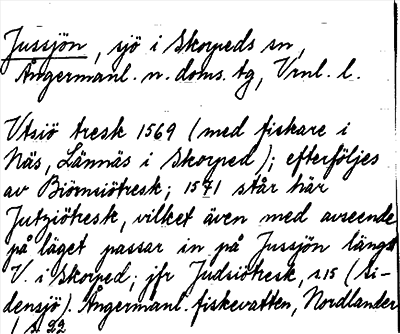 Jussjön, sjö i Skorpeds sn,
Ångermanl. n. doms. tg, Vrnl. l.
Utsiö tresk 1569 (med fiskare i
Näs, Lännäs i Skorped); efterföljes
av Biörnsiötresk; 1571 står här
Jutziötresk, vilket även med avseende
på läget passar in på Jussjön längst
V. i Skorped; jfr Judsiötresk, s. 15 (Si-
densjö). Ångermanl. fiskevatten, Nordlander
s. 22